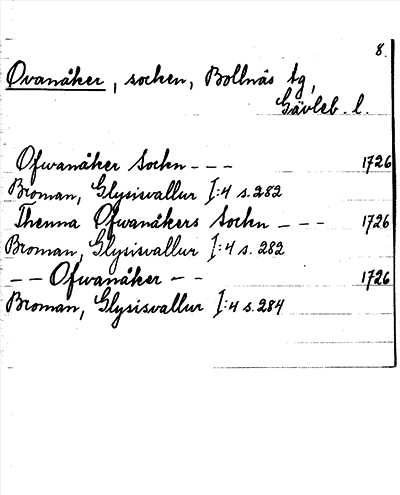 8.
Ovanåker, socken, Bollnäs tg,
Gävleb. l.
Ofwanåker Sockn - - - 1726
Broman, Glysisvallur I:4 s. 282
Thenna Ofwanåkers Sockn - - - 1726
Broman, Glysisvallur I:4 s. 282
- - Ofwanåker - - 1726
Broman, Glysisvallur I:4 s. 284